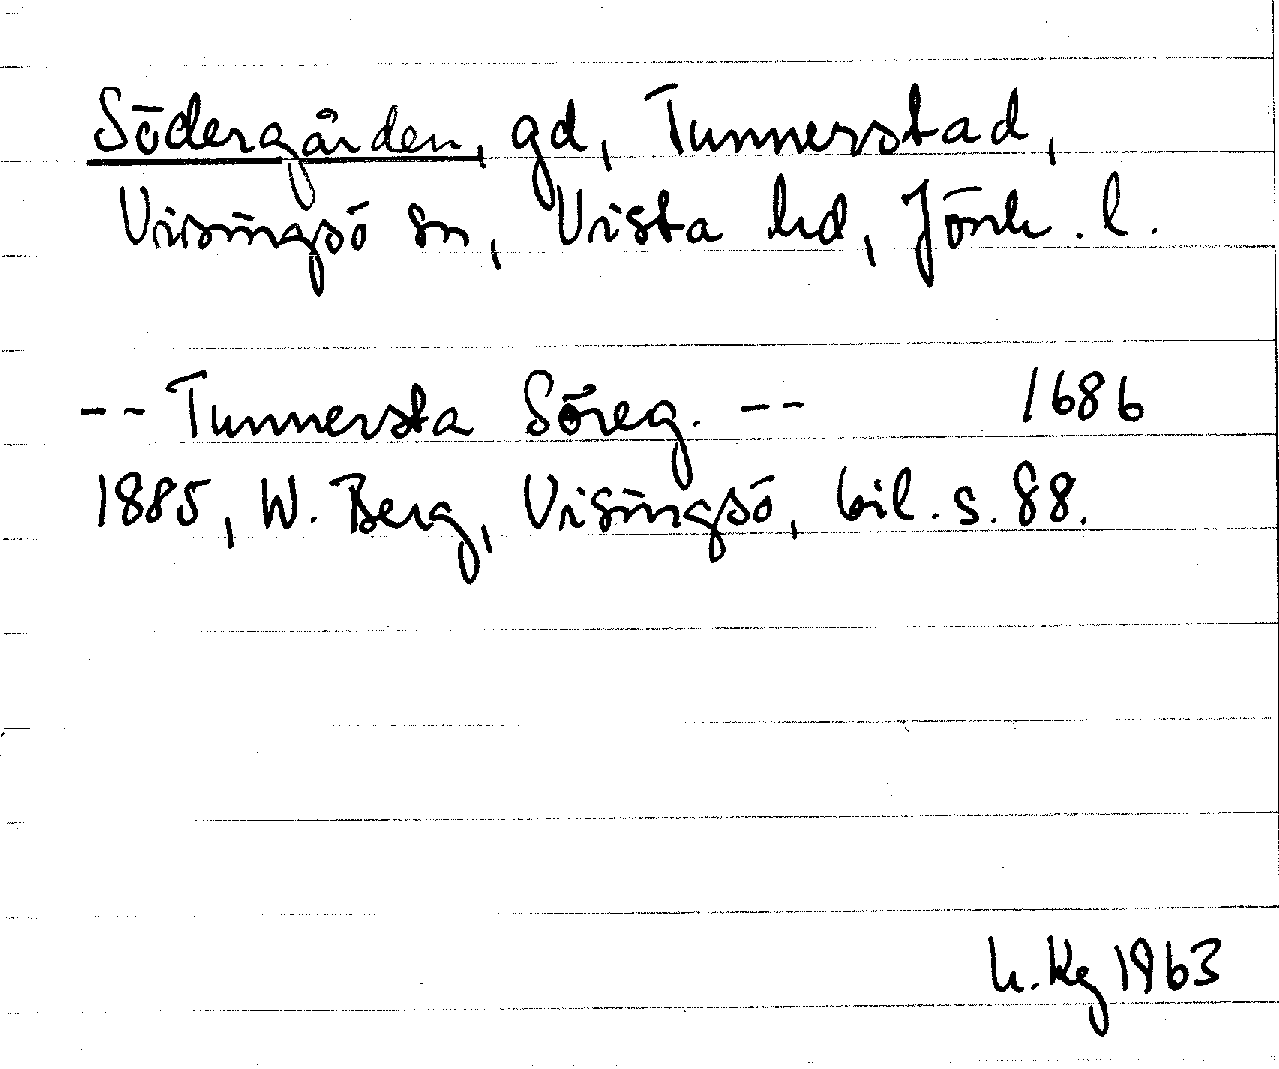 Södergården, gd, Tunnerstad,
Visingsö sn, Vista hd, Jönk. l.
-- Tunnersta Söreg. -- 1686
1885, W. Berg, Visingsö, bil. s. 88.
h. Kg 1963